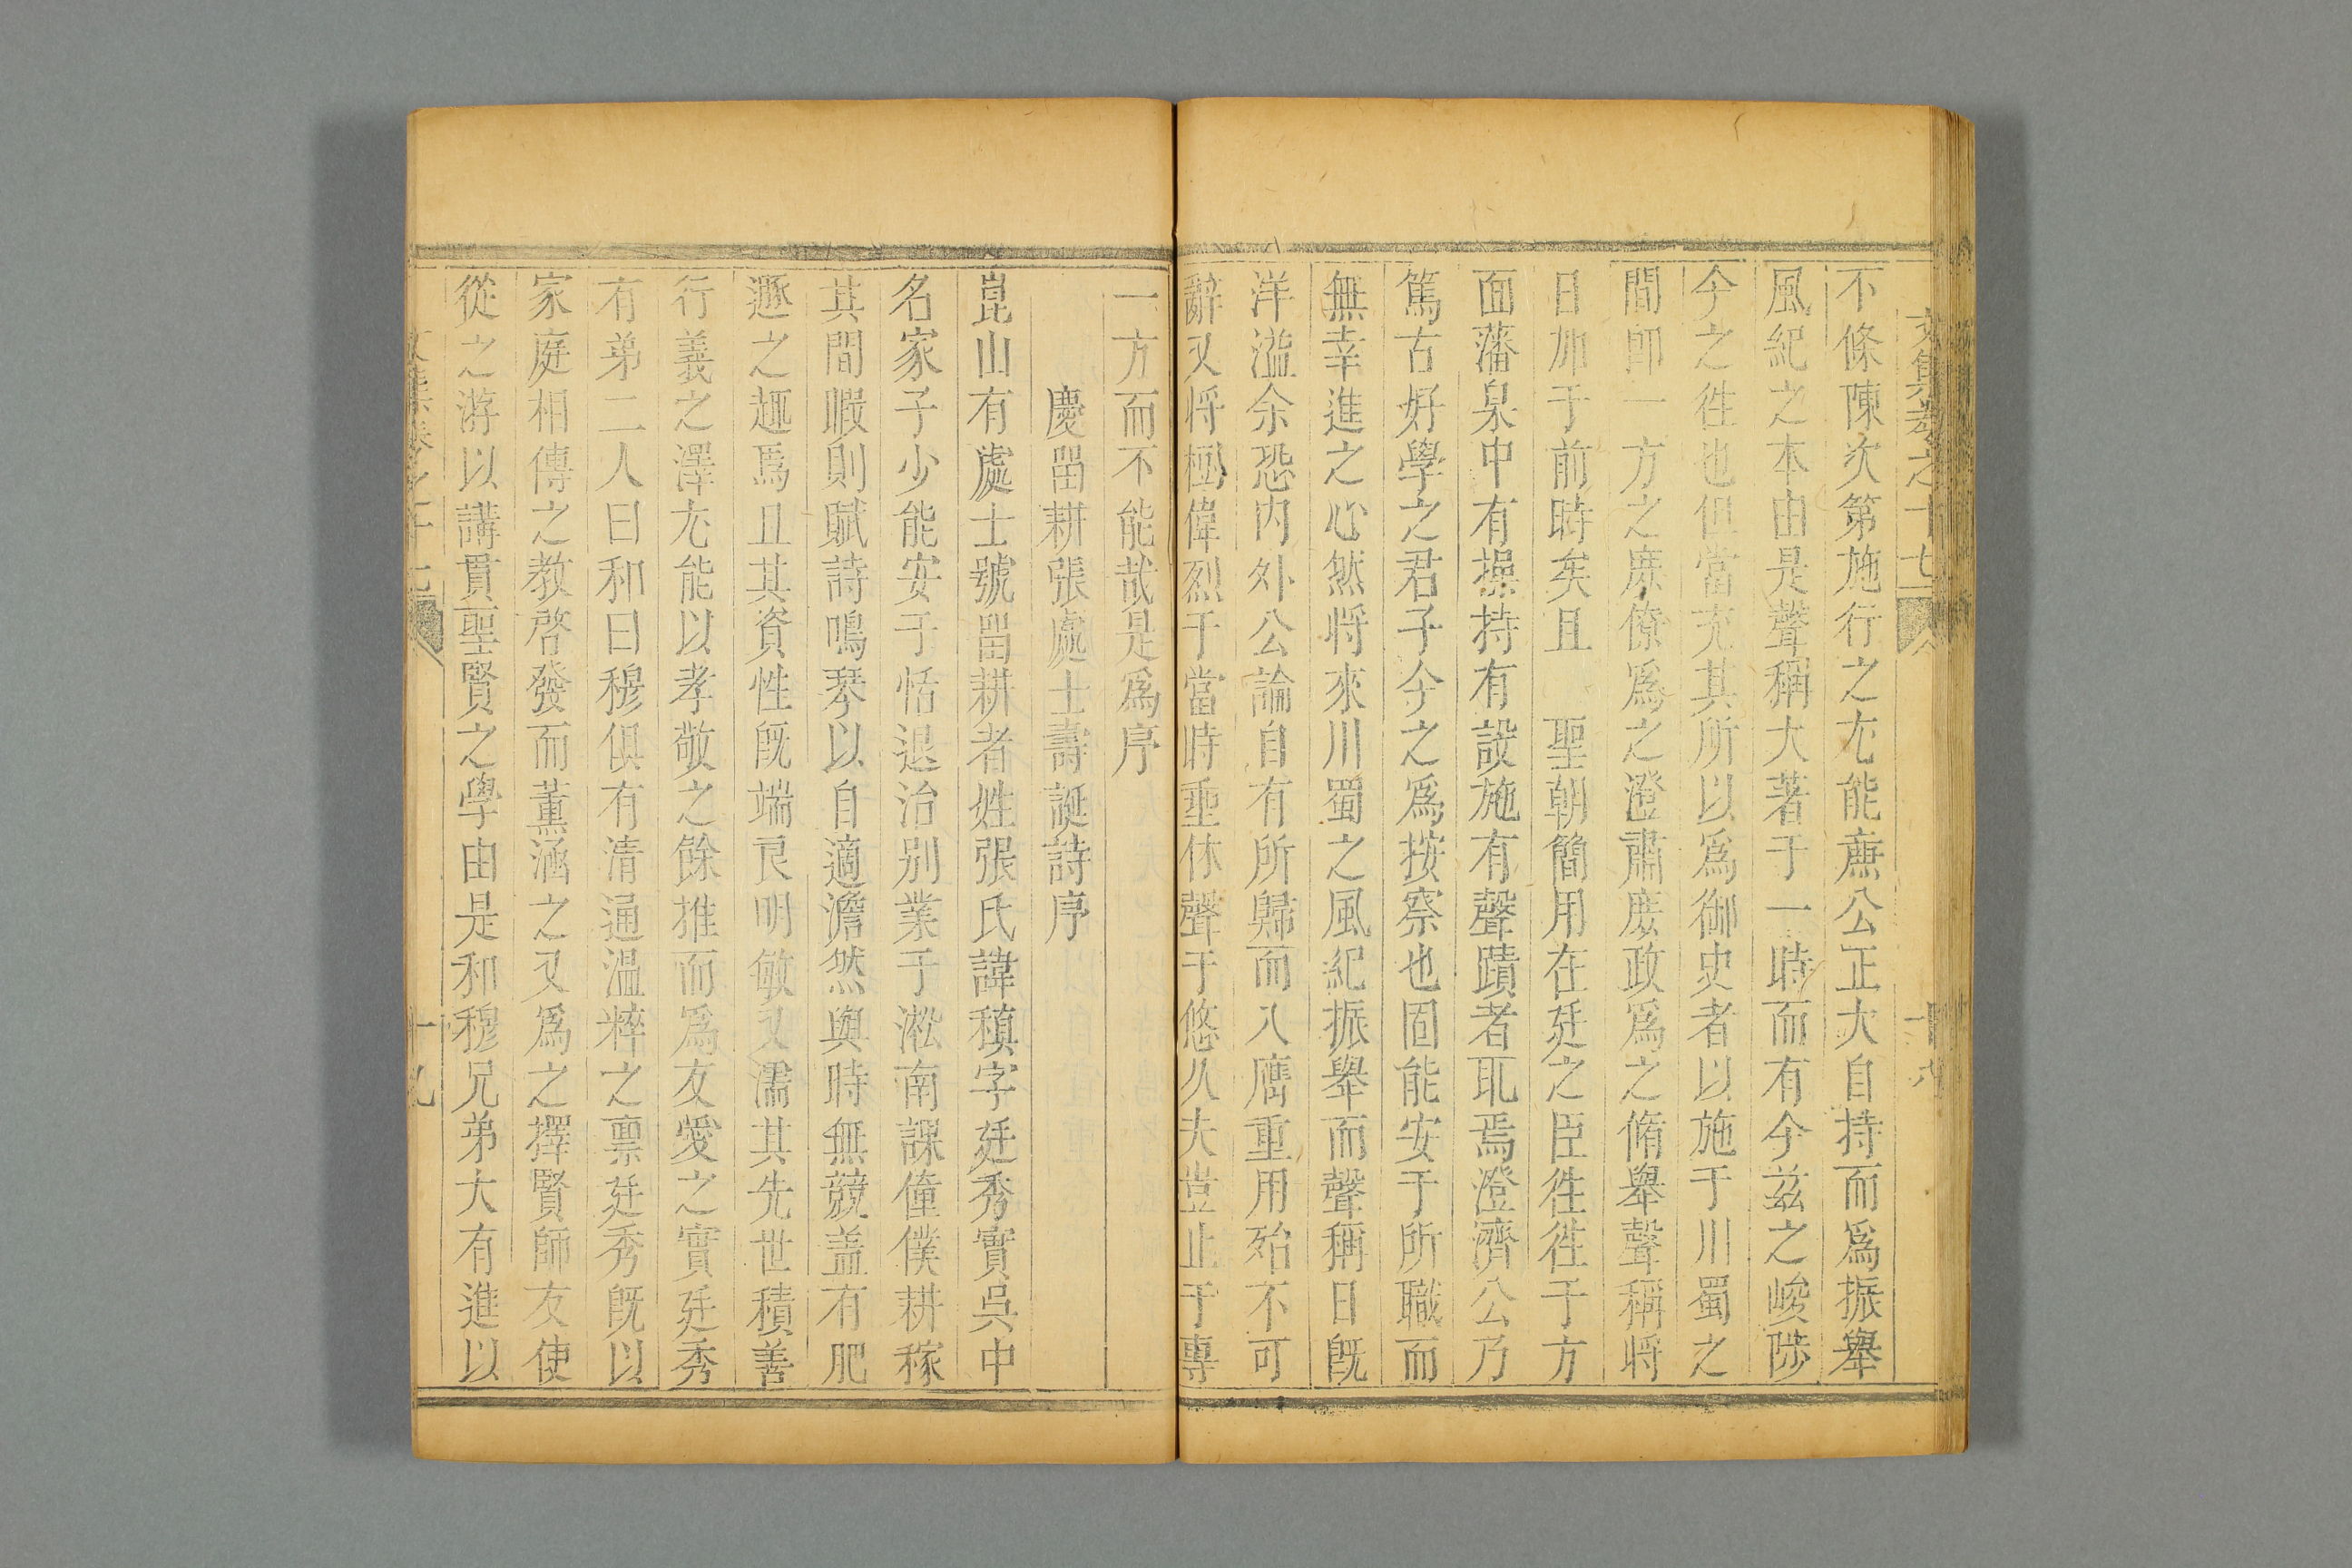 文集卷之十七 十八
不條陳次第施行之尤能廉公正大自持而爲振舉
風紀之本由是聲稱大著于一時而有今兹之峻陟
今之徃也但當充其所以爲御史者以施于川蜀之
間即一方之庶僚爲之澄肅庶政爲之脩舉聲稱將
日加于前時矣且 聖朝簡用在廷之臣徃徃于方
面藩臬中有操持有設施有聲蹟者耴焉澄濟公乃
篤古好學之君子今之爲按察也固能安于所職而
無幸進之心然将來川蜀之風紀振舉而聲稱日旣
洋溢余恐内外公論自有所歸而入膺重用殆不可
辭又将樹偉烈于當時垂休聲于悠久夫豈止于專
一方而不能哉是爲序
慶畱耕張處士壽誕詩序
崑山有處士號畱耕者姓張氏諱稹字廷秀實吳中
名家子少能安于恬退治别業于淞南課僮僕耕稼
其間暇則賦詩鳴琴以自適澹然與時無競盖有肥
遯之趣焉且其資性旣端良明敏又濡其先世積善
行義之澤尤能以孝敬之餘推而爲友愛之實廷秀
有弟二人曰和曰穆俱有清通温粹之禀廷秀旣以
家庭相傳之教啓發而薰涵之又爲之擇賢師友使
從之游以講貫聖賢之學由是和穆兄弟大有進以
文集卷之十七 十九